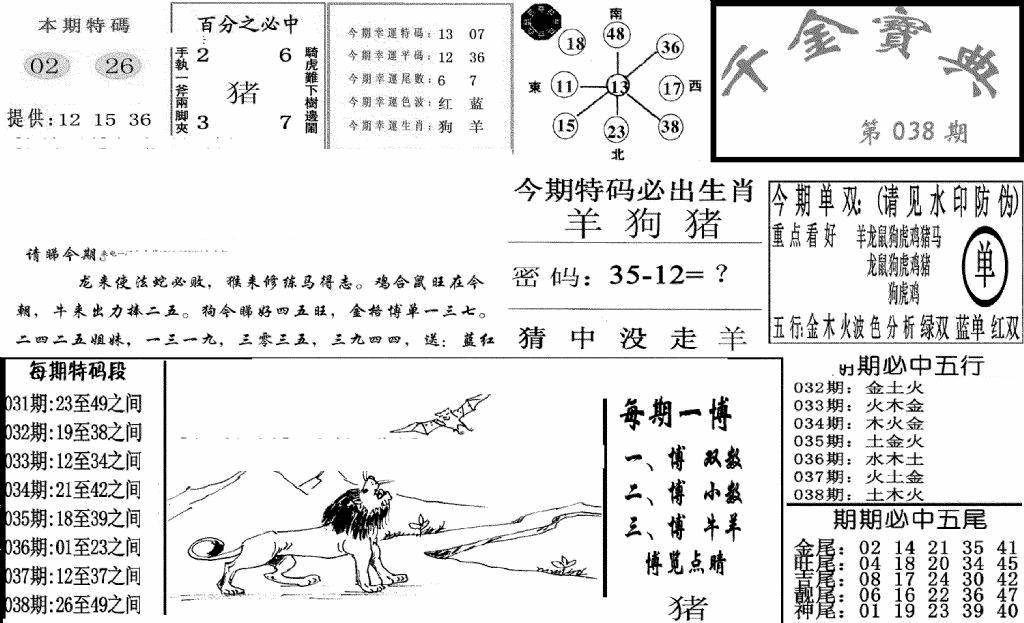 本期特碼
02 26
提供:12 15 36
百分之必中
手執一斧兩脚夾
2 6
猪
3 7
騎虎難下樹邊鬧
今期幸運特碼: 13 07
今期幸運平碼: 12 36
今期幸運尾數: 6 7
今期幸運色波: 红 蓝
今期幸運生肖: 狗 羊
南
48
18 36
東 11 13 17 西
15 23 38
北
金寶典
第 038 期
请睇今期
龙来使法蛇必败，猴来修练马得志。鸡合鼠旺在今
朝，牛来出力捧二五。狗今睇好四五旺，金格博单一三七。
二四二五姐妹，一三一九，三零三五，三九四四，送：蓝红
今期特码必出生肖
羊 狗 猪
密码：35-12=？
猜中没走羊
今期单双:(请见水印防伪)
重点看好 羊龙鼠狗虎鸡猪马
龙鼠狗虎鸡猪
狗虎鸡
单
五行:金木火波色分析 绿双 蓝单 红双
每期特码段
031期:23至49之间
032期:19至38之间
033期:12至34之间
034期:21至42之间
035期:18至39之间
036期:01至23之间
037期:12至37之间
038期:26至49之间
每期一博
一、博 双数
二、博 小数
三、博 牛羊
博览点睛
猪
期必中五行
032期：金土火
033期：火木金
034期：木火金
035期：土金火
036期：水木土
037期：火土金
038期：土木火
期期必中五尾
金尾：02 14 21 35 41
旺尾：04 18 20 34 45
吉尾：08 17 24 30 42
靓尾：06 16 22 36 47
神尾：01 19 23 39 40